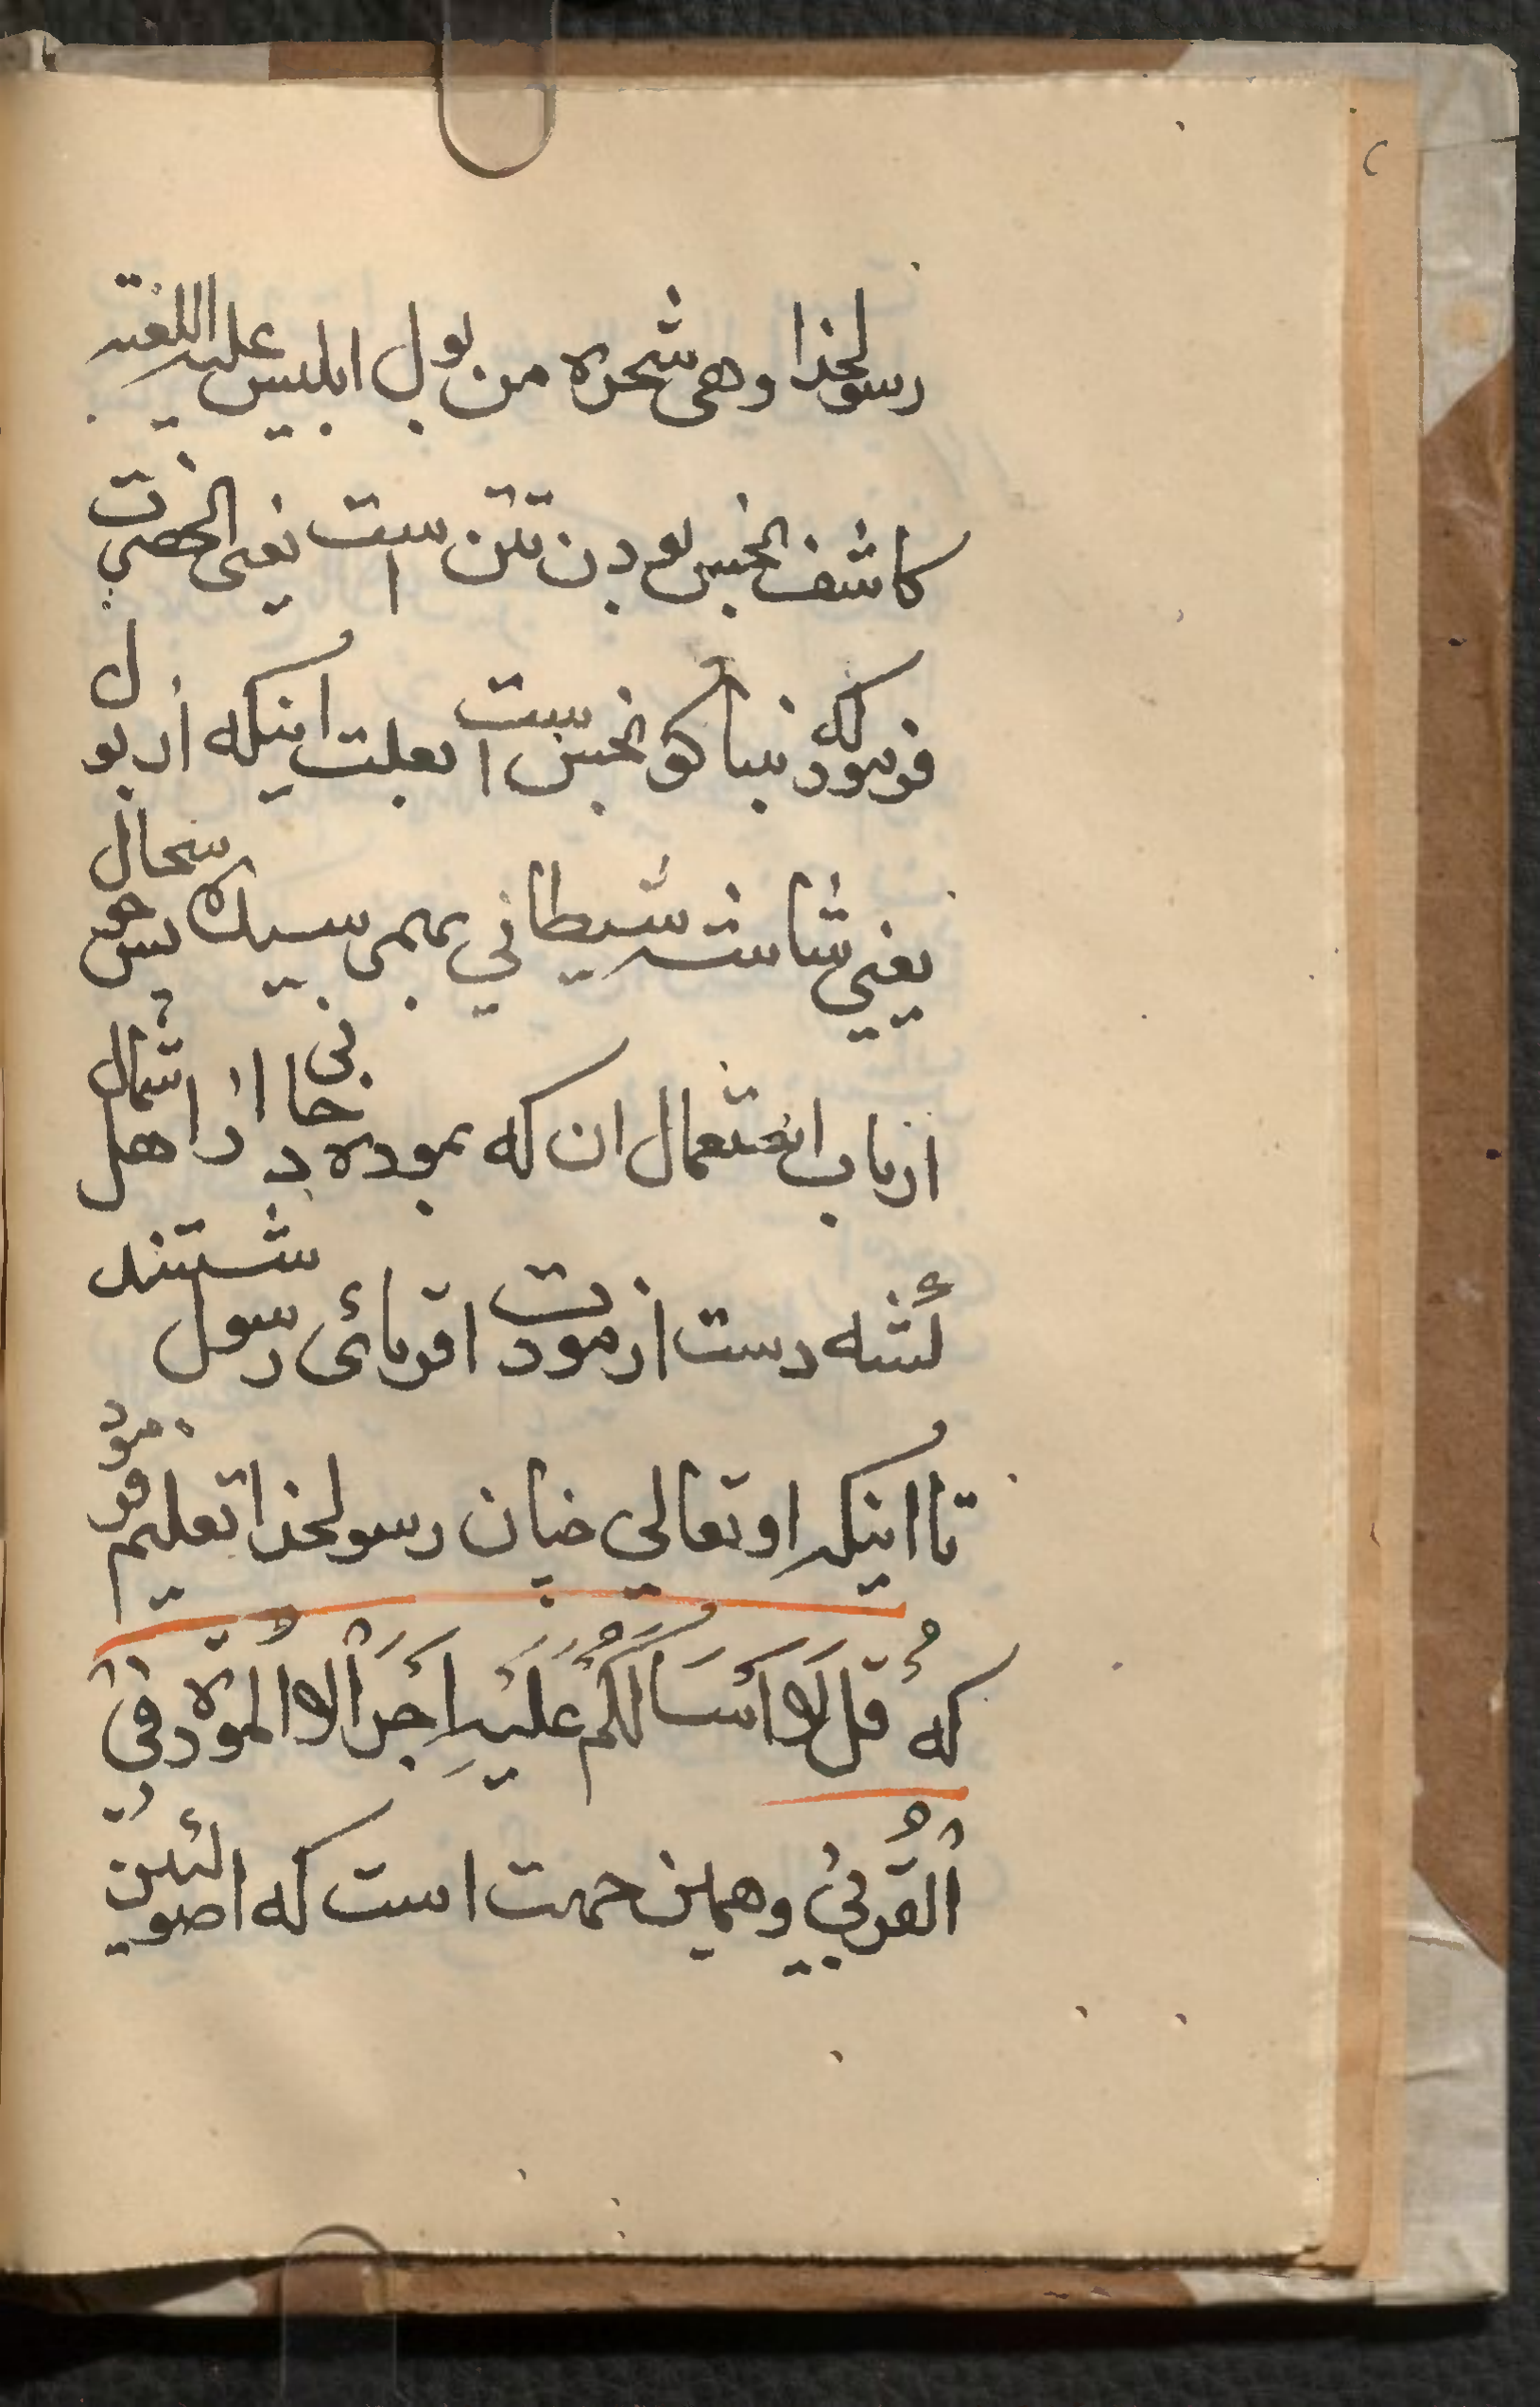 رسولخدا وهی شجره من بول ابلیس علیه اللعنه
کاشف نجس بودن تتن است یعنی انحضرت
فرموده که تنباکو نجس است بعلت اینکه از بول
یعنی شاشه شیطانی بهمی سیده پس سحال
ارباب استعمال ان که نموده بی جا از اهل شمال
لشه دست از مودت اقربائی رسول شستند
تا اینکه او تعالی خبان رسولخدا تعلیم فرمود
که قُل لا اَسَالکُم عَلَیهِ اَجرَاً الا المودة فی
اَلقُربیٰ وهمین حمت است که اصولئین